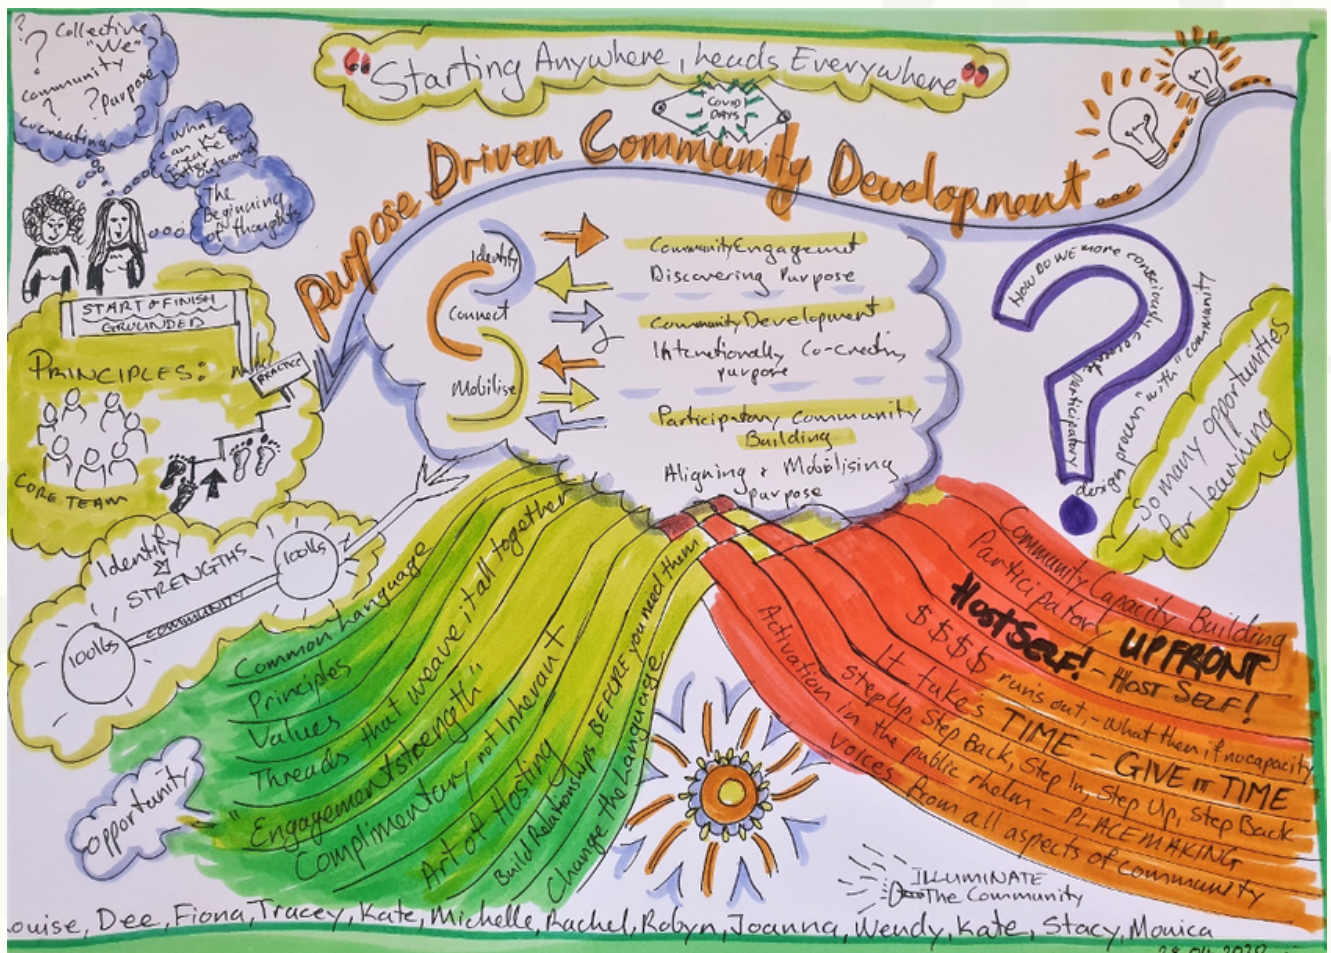 ? Collective
? "We" ?
Community
? ? Purpose
Cocreating
What
can we
create
The
Beginning
of thoughts
"Starting Anywhere, leads Everywhere"
COVID
DAYS
Purpose Driven Community Development...
START & FINISH
GROUNDED
PRINCIPLES:
PRACTICE
CORE TEAM
Identify
STRENGTHS
100lbs
COMMUNITY
100lbs
Identify
Connect
Mobilise
Community Engagemet
Discovering Purpose
Community Development
Intentionally Co-Creating
purpose
Participatory Community
Building
Aligning & Mobilising
purpose
HOW DO WE MORE CONSCIOUSLY
participatory
design process "with" community
So many opportunities
for learning
Common Language
Principles
Values
Threads that weave it all together
"Engagement strength"
Complimentary not Inherant
Art of Hosting
Build Relationships BEFORE you need them
Change the Language
opportunity
Community Capacity Building
Participatory UPFRONT
Host SELF! - HOST SELF!
$$$$ runs out, - what then if no capacity
It takes TIME - GIVE IT TIME
Step Up, Step Back, Step In, Step Up, Step Back
Activation in the public rhelm - PLACEMAKING
Voices from all aspects of community
ILLUMINATE
The Community
ouise, Dee, Fiona, Tracey, Kate, Michelle, Rachel, Robyn, Joanna, Wendy, Kate, Stacy, Monica